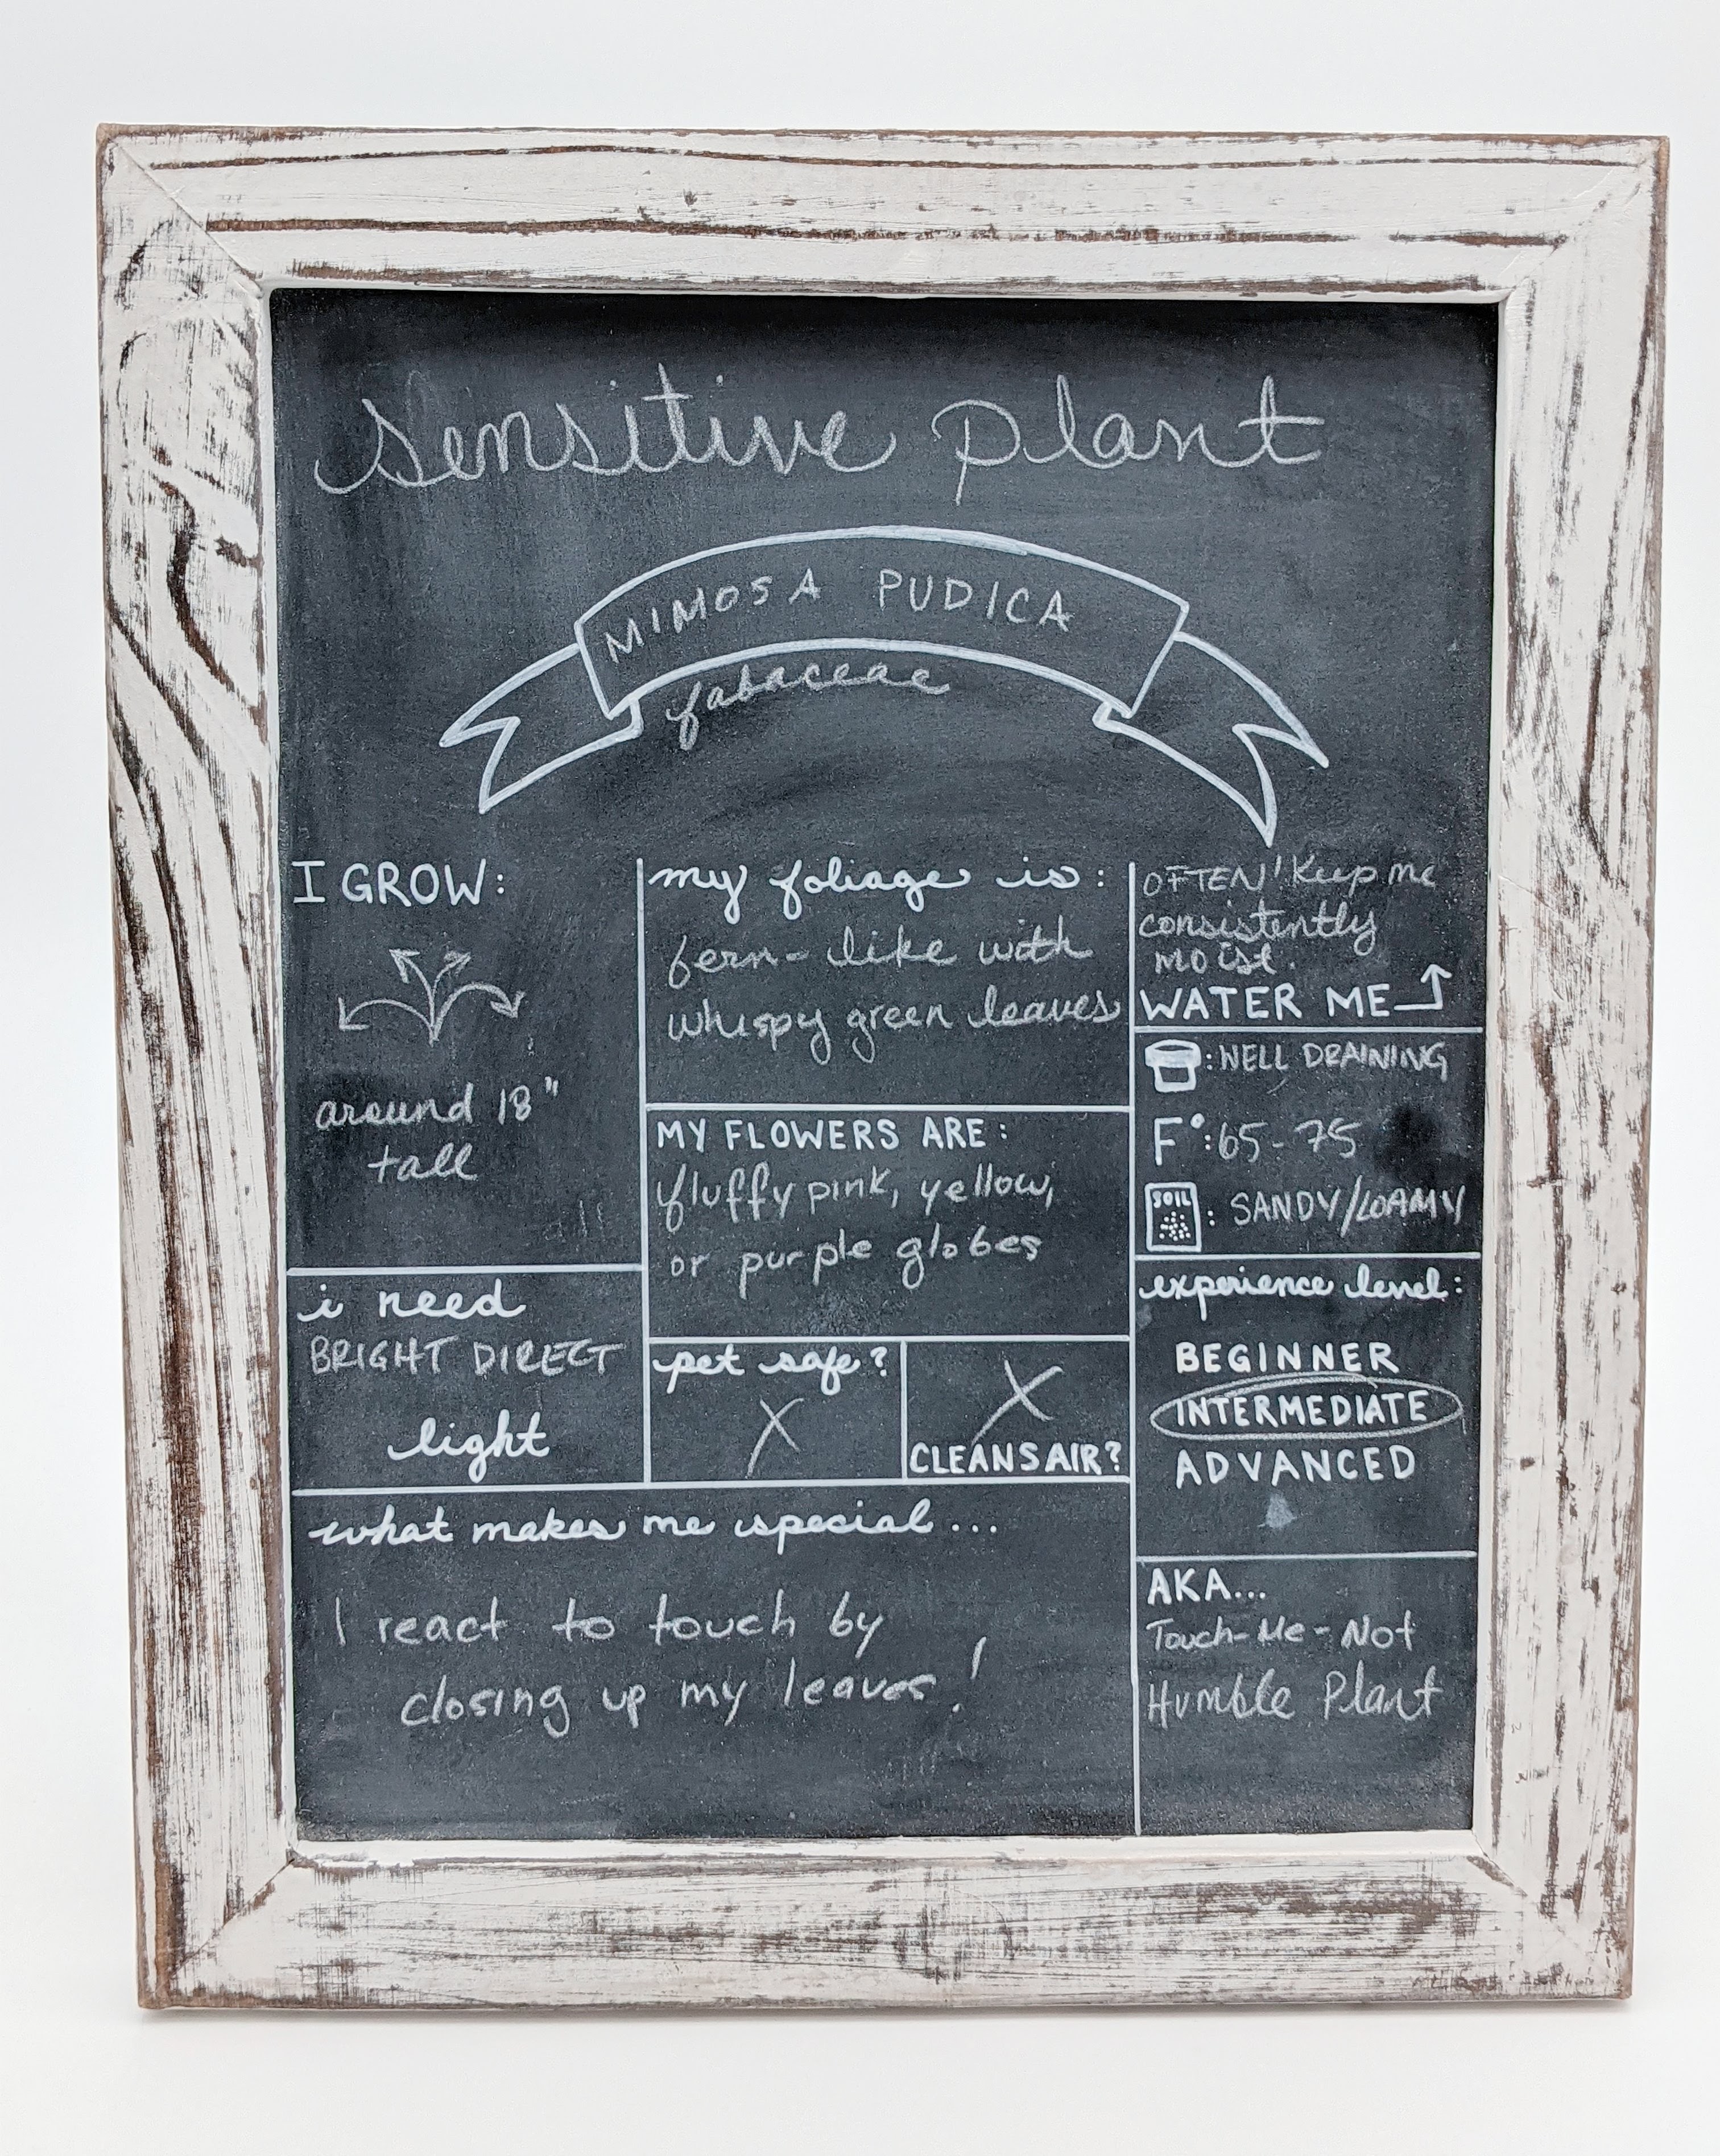 sensitive plant
MIMOSA PUDICA
fabaceae
I GROW:
around 18"
tall
i need
BRIGHT DIRECT
light
my foliage is:
fern-like with
whispy green leaves
MY FLOWERS ARE:
fluffy pink, yellow,
or purple globes
pet safe?
X
X
CLEANS AIR?
OFTEN! Keep me
consistently
moist.
WATER ME
: WELL DRAINING
F°: 65-75
SOIL
: SANDY/LOAMY
experience level:
BEGINNER
INTERMEDIATE
ADVANCED
what makes me special...
I react to touch by
closing up my leaves!
AKA...
Touch-Me-Not
Humble Plant